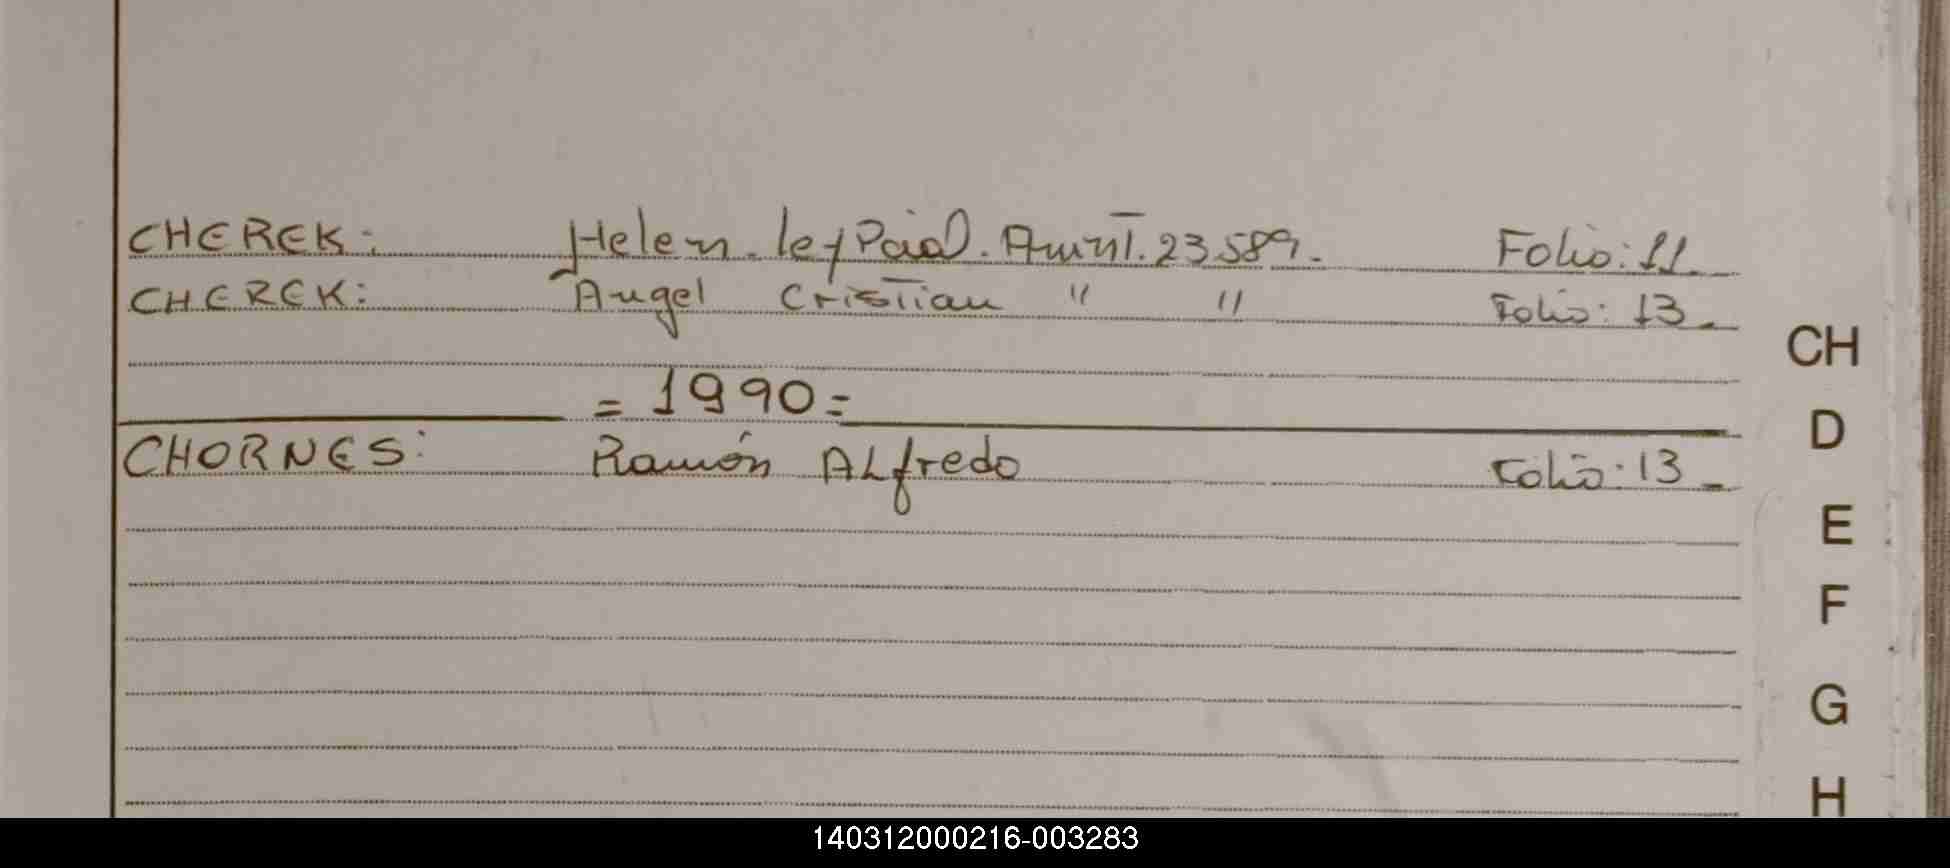 CHEREK: Helem. ley Pcial. Amnt. 23.589. Folio: 11.
CHEREK: Angel Cristian " " Folio: 13.
= 1990 =
CHORNES: Ramón ALfredo Folio: 13
CH
D
E
F
G
H
140312000216-003283